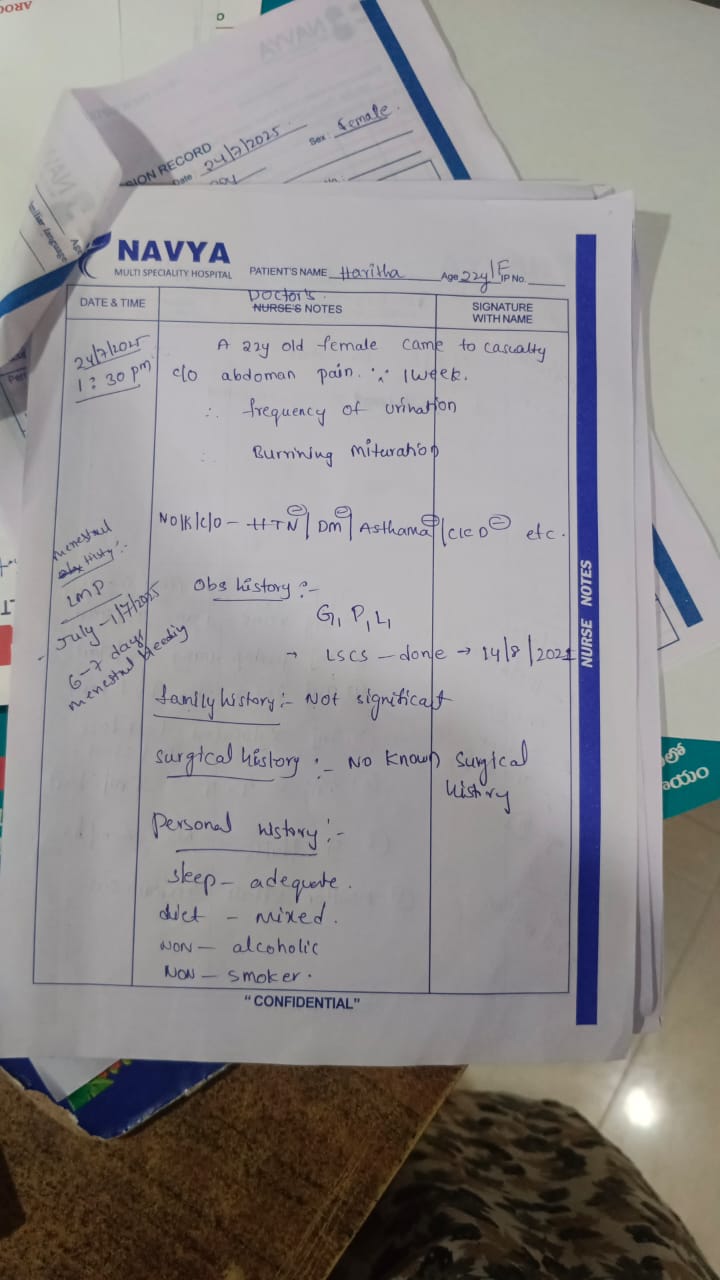 SION RECORD
Date : 24/7/2025
Sex : female.
NAVYA
MULTI SPECIALITY HOSPITAL
PATIENT'S NAME Haritha Age 22y/F IP No.
DATE & TIME
Doctor's
NURSE'S NOTES
SIGNATURE
WITH NAME
24/7/2025
1:30 pm
A 22y old female came to casualty
c/o abdoman pain. 1week.
frequency of urination
Burrining mituration
NO/K/C/O - HTN⊖/ DM⊖/ Asthama⊖/CKD⊖ etc.
menestral
obs history:-
LMP
- July - 1/7/2025
6-7 days
menestral bleediy
Obs history :-
G1 P1 L1
→ LSCS - done → 14/8/2021
family history:- Not significant
surgical history :- No known surgical
history
Personal history:-
sleep - adequate.
diet - mixed.
NON - alcoholic
NON - smoker.
"CONFIDENTIAL"
NURSE NOTES